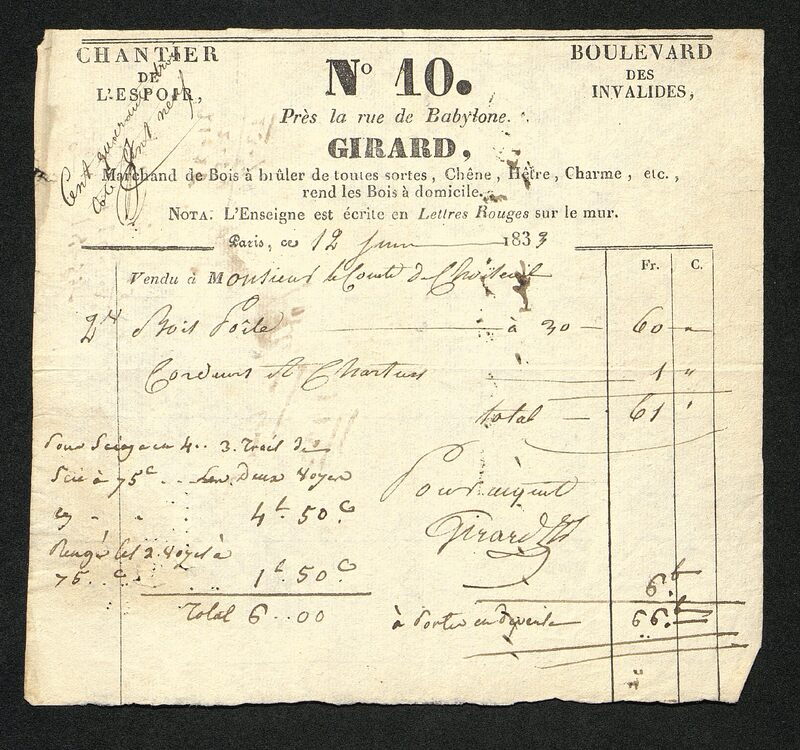 CHANTIER
DE
L'ESPOIR,
No 10.
BOULEVARD
DES
INVALIDES,
Près la rue de Babylone.
GIRARD,
Marchand de Bois à brûler de toutes sortes, Chêne, Hêtre, Charme, etc.,
rend les Bois à domicile.
NOTA. L'Enseigne est écrite en Lettres Rouges sur le mur.
Paris, ce 12 Juin 1833
Fr. C.
Vendu à Monsieur le Comte de Choiseuil
2 Bois à 30 60 "
Cordeurs et 1 "
total 61 "
Pour 4.. 3. Trait de
Scie à 75c Les Deux Voyes
4 50c
Ranger les 2. Voyes à
75 c 1 50c
Total 6..00
Pour acquit
Girard
6
à Porter en dépense 66